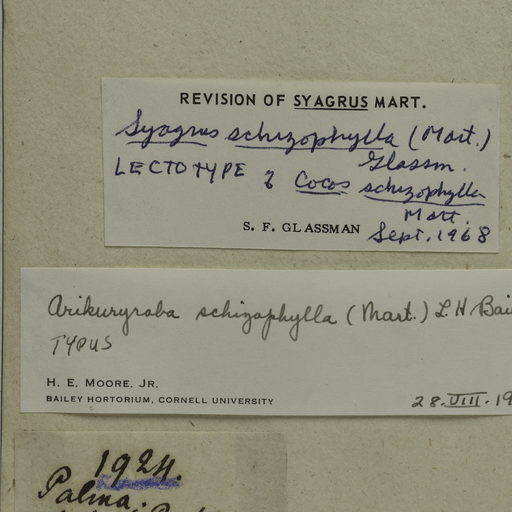 REVISION OF SYAGRUS MART.
Syagrus schizophylla (Mart.)
Glassm.
LECTOTYPE of Cocos schizophylla
Mart.
S. F. GLASSMAN Sept. 1968
Arikuryroba schizophylla (Mart.) L. H. Bai
TYPUS
H. E. MOORE, JR.
BAILEY HORTORIUM, CORNELL UNIVERSITY
28. VIII. 19
1924.
Palma.